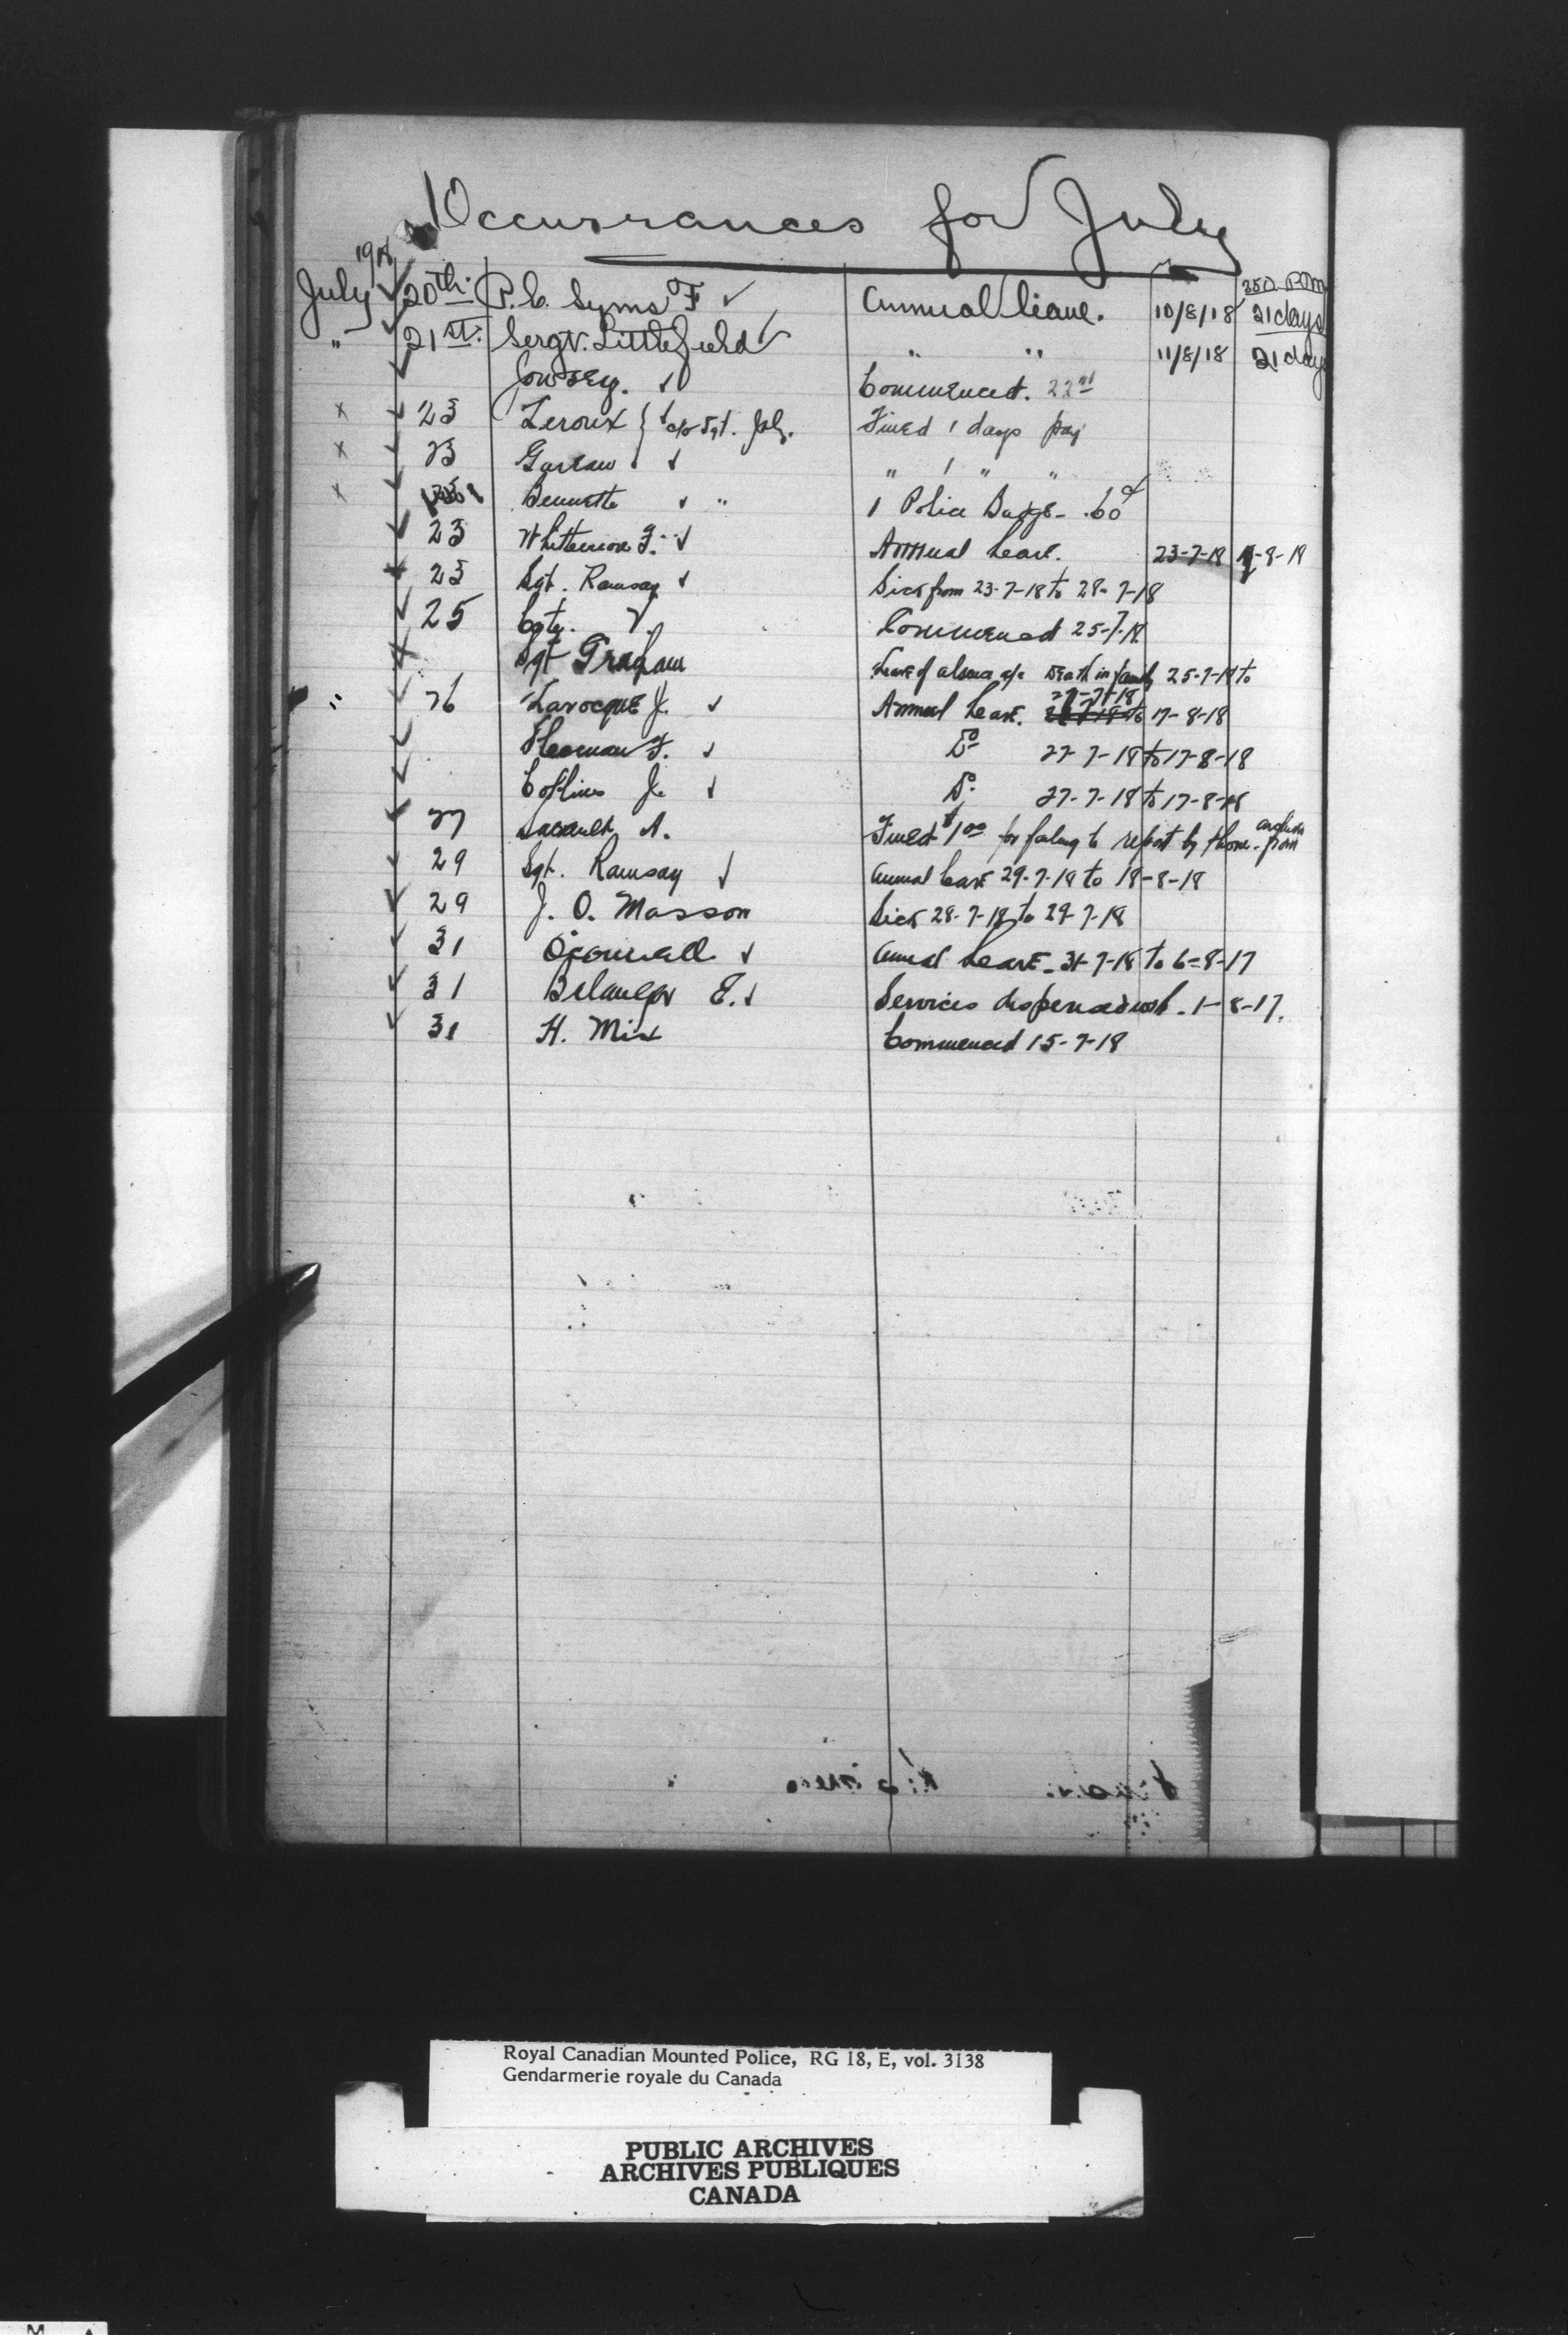 Occurrances for July
1918
July 20th. P.C. Syms F Annual Leave. 10/8/18 21 days
" 21st. Sergt. Littlefield " " 11/8/18 21 days
Jowsey. Commenced. 22nd
23 Leroux Fined 1 days pay
23 " 1 " "
Bennette " 1 Police Badge - .60
23 Whittemore F. Annual Leave. 23-7-18 -8-18
23 Sgt. Ramsay Sick from 23-7-18 to 28-7-18
25 Commenced 25-7-18
Sgt Graham Leave of absence a/c Death in family 25-7-18 to
27-7-18
26 Larocque J. Annual Leave. to 17-8-18
F. Do 27-7-18 to 17-8-18
Collins J. Do. 27-7-18 to 17-8-18
27 A. Fined $1.00 for failing to report by phone. from
29 Sgt. Ramsay Annual Leave 29-7-18 to 18-8-18
29 J. O. Masson Sick 28-7-18 to 29-7-18
31 O'Connell Annual Leave - 31-7-18 to 6-8-17
31 Belanger E. Services dispensed with. 1-8-17.
31 H. Mix Commenced 15-7-18
Royal Canadian Mounted Police, RG 18, E, vol. 3138
Gendarmerie royale du Canada
PUBLIC ARCHIVES
ARCHIVES PUBLIQUES
CANADA